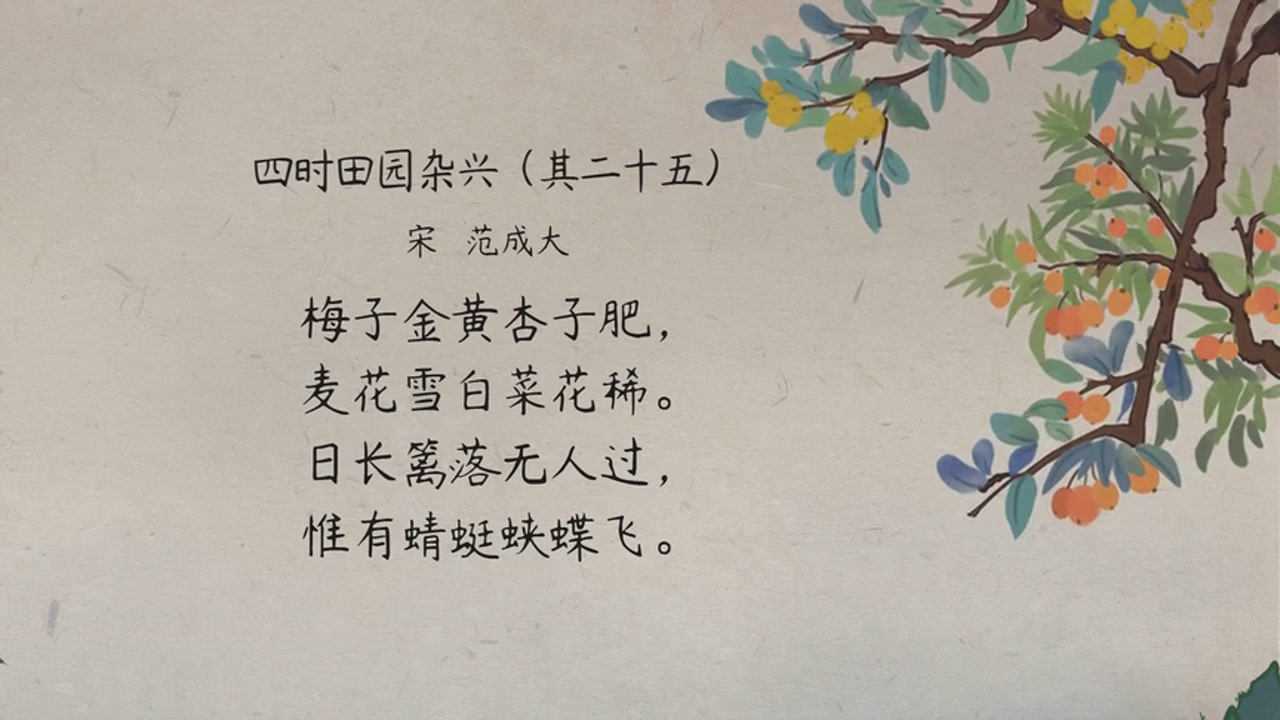 四时田园杂兴（其二十五）
宋 范成大
梅子金黄杏子肥，
麦花雪白菜花稀。
日长篱落无人过，
惟有蜻蜓蛱蝶飞。